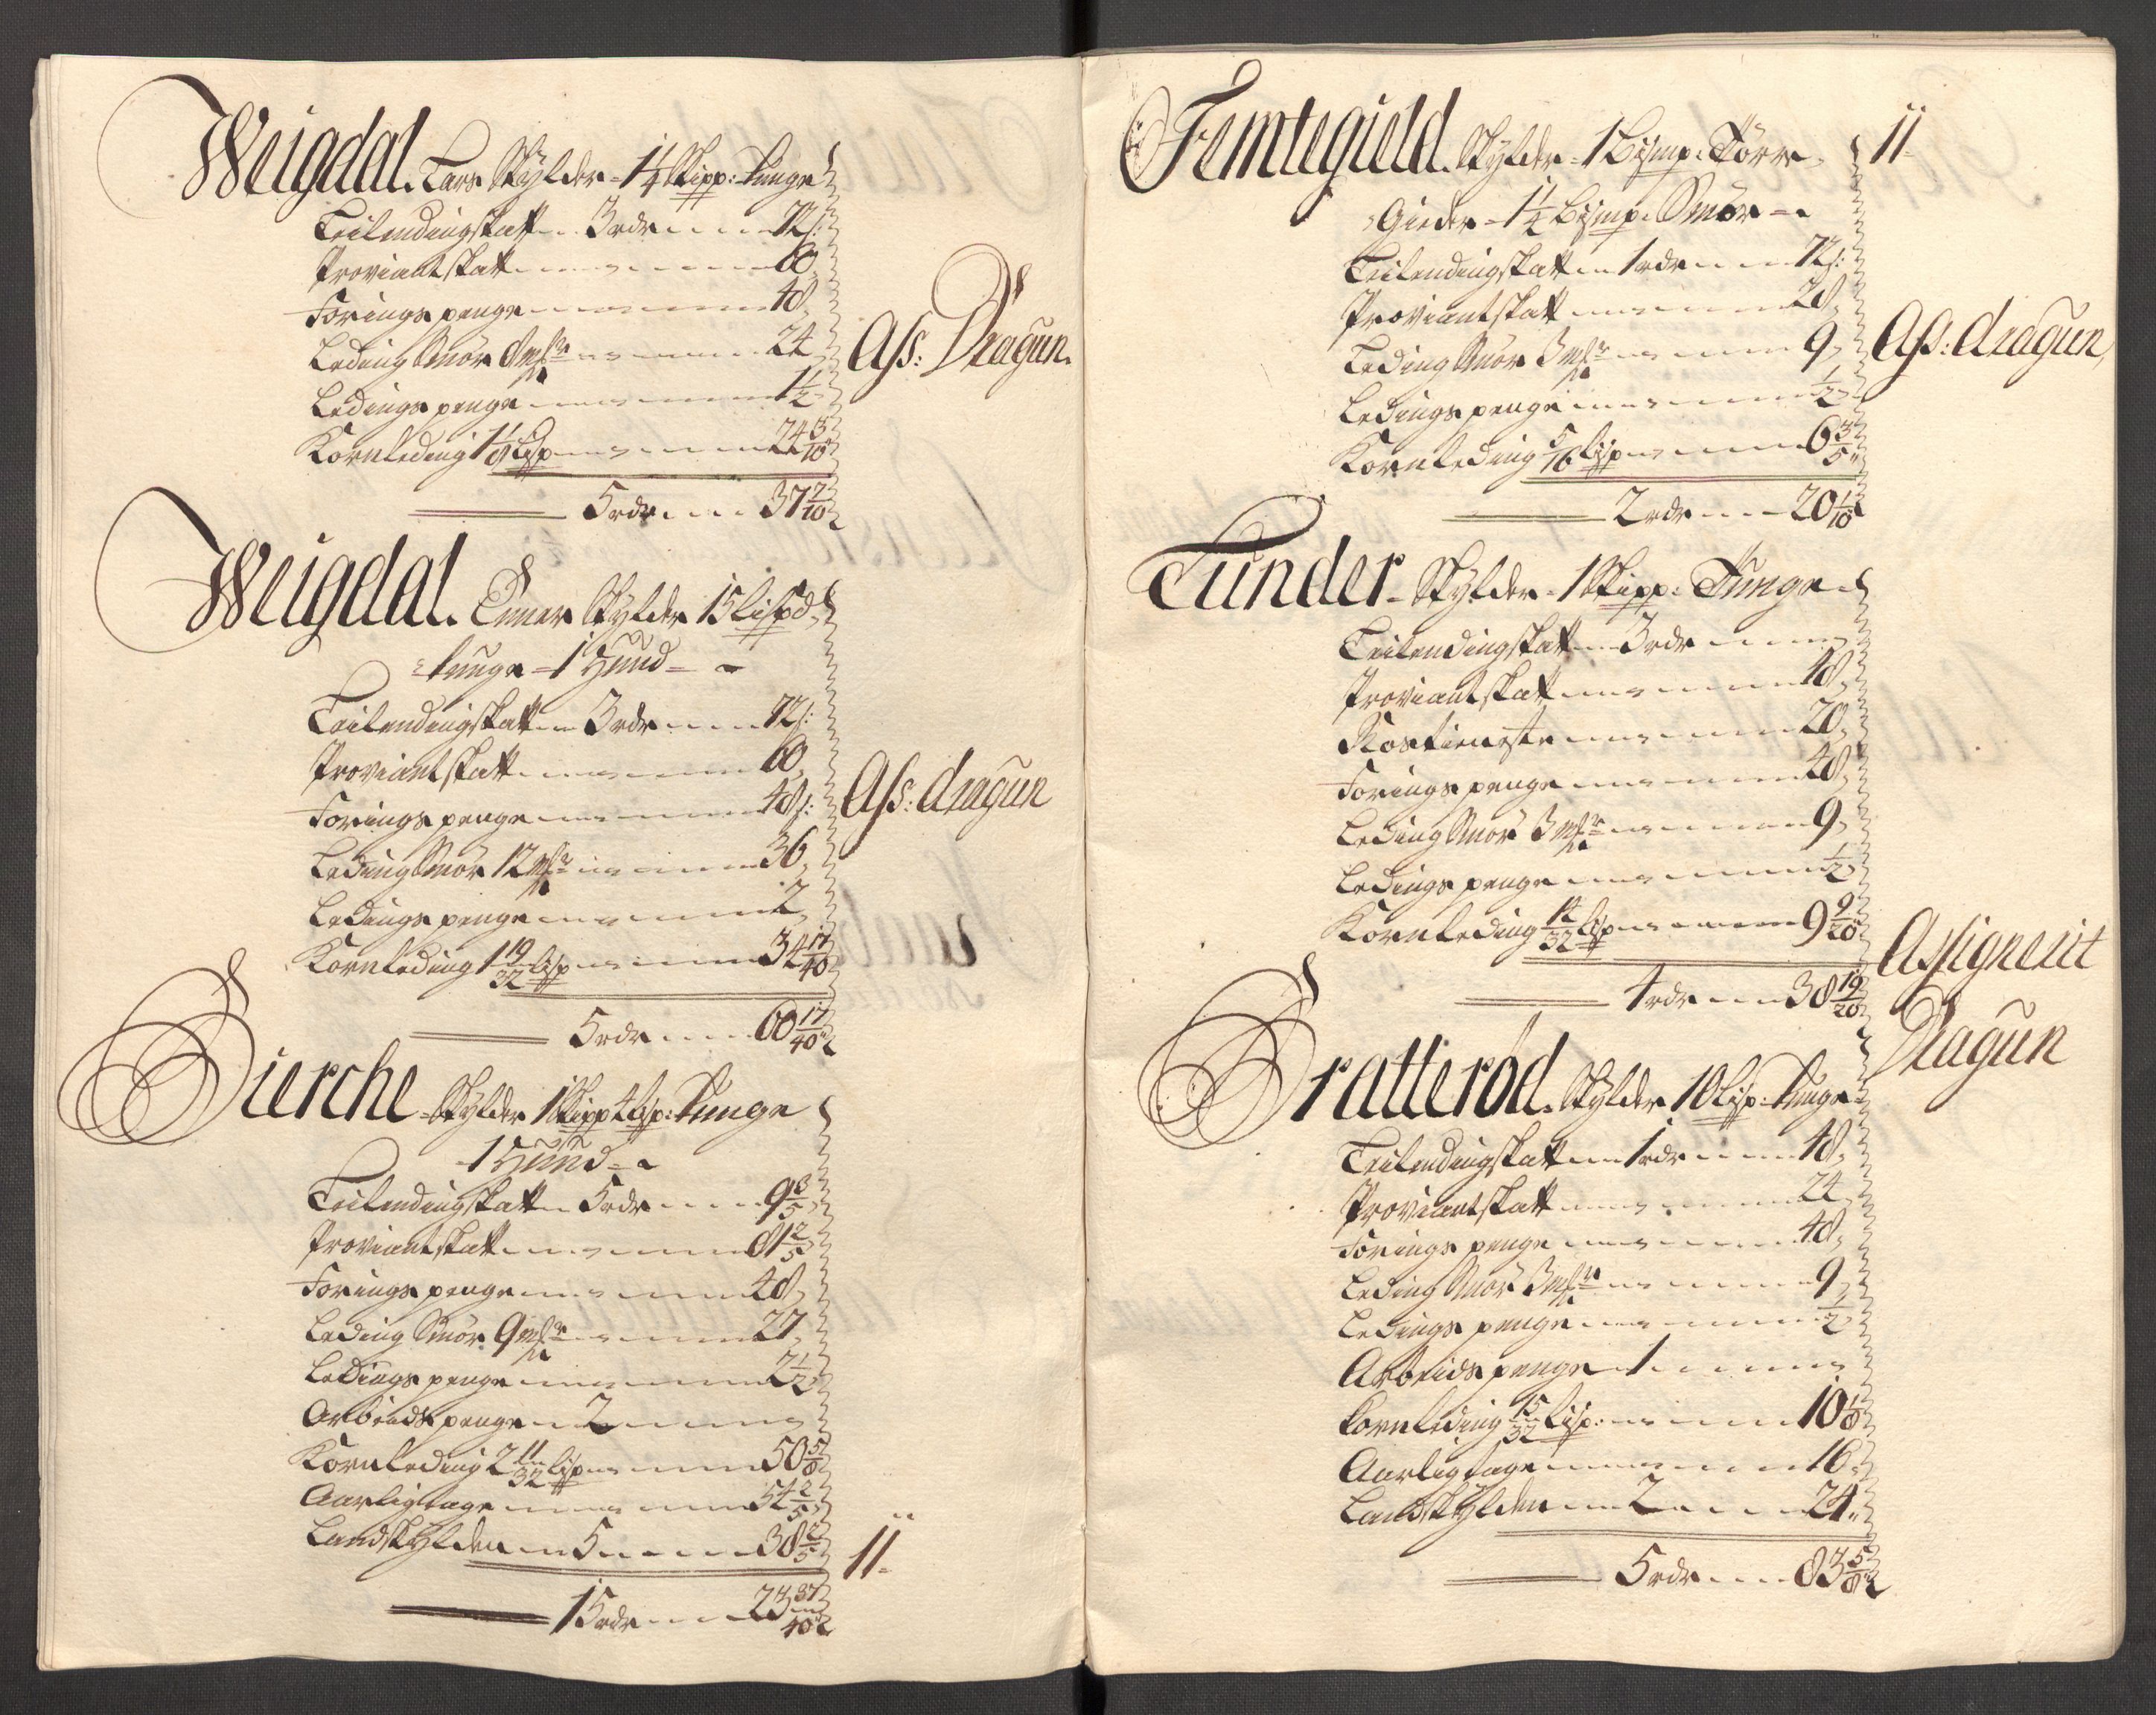 Weigdal. Lars Skylder - 1 1/4 Skipp: tunge
Leilendingskatt - 3 rdr - 72 s:
Proviantskatt - 60,
Foringspenge - 48,
Leding Smør 8 mkr - 24
Ledings penge - 1 1/2,
Kornleding 1 1/8 lisp - 24 3/10
5 rdr - 37 7/10
Ass: Dragun.
Weigdal. Enner Skylder 15 lispd
tunge - 1 Hund -
Leilendingskatt - 3 rdr - 72 s:
Proviantskatt - 60,
Foringspenge - 48 s:
Leding Smør 12 mkr - 36,
Ledings penge - 2,
Kornleding 1 19/32 lisp - 34 17/40
5 rdr - 60 17/40
Ass: dragun
Bierche Skylder 1 Skipp 4 lisp: tunge
1 Hund -
Leilendingskatt - 5 rdr - 9 3/5,
Proviantskatt - 81 2/5
Foringspenge - 48,
Leding Smør 9 mkr - 27,
Ledings penge - 2 1/2,
Arbeidspenge - 2
Kornleding 2 11/32 lisp - 50 5/8
Aarligtage - 54 2/5,
Landskylden - 5 - 38 2/5
15 rdr - 23 37/40
11-
Femtegield. Skylder - 1 Bismp: Tørr
Gieder - 1 1/4 Bismp: Smør -
11-
Leilendingskatt - 1 rdr - 72 s:
Proviantskatt - 28,
Leding Smør 3 mkr - 9,
Ledings penge - 1/2,
Kornleding 5/16 lisp - 6 3/5
2 rdr - 20 1/10
Ass: dragun,
Tunder - Skylder - 1 Skipp: Tunge
Leilendingskatt - 3 rdr
Proviantskatt - 48,
Rostieneste - 20,
Foringspenge - 48,
Leding Smør 3 mkr - 9,
Ledings penge - 1/2,
Kornleding 14/32 lisp - 9 9/20
4 rdr - 38 19/20
Assignerit
Dragun
Bratterød. Skylder 10 lisp: tunge
Leilendingskatt - 1 rdr - 48,
Proviantskatt - 24,
Foringspenge - 48,
Leding Smør 3 mkr - 9,
Ledings penge - 1/2,
Arbeids penge - 1
Kornleding 15/32 lisp: - 10 1/8
Aarligtage - 16,
Landskylden - 2 - 24,
5 rdr - 83 5/8